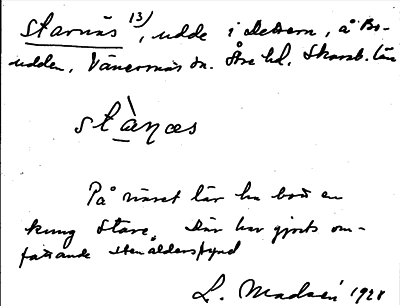 Starnäs 13), udde i Vettern, å Bo-
udden, Vänersnäs sn. Åse hd. Skarab. län
stànæs
På näset lär ha bott en
kung Stare. Där har gjorts om-
fattande stenåldersfynd
L. Madsén 1928